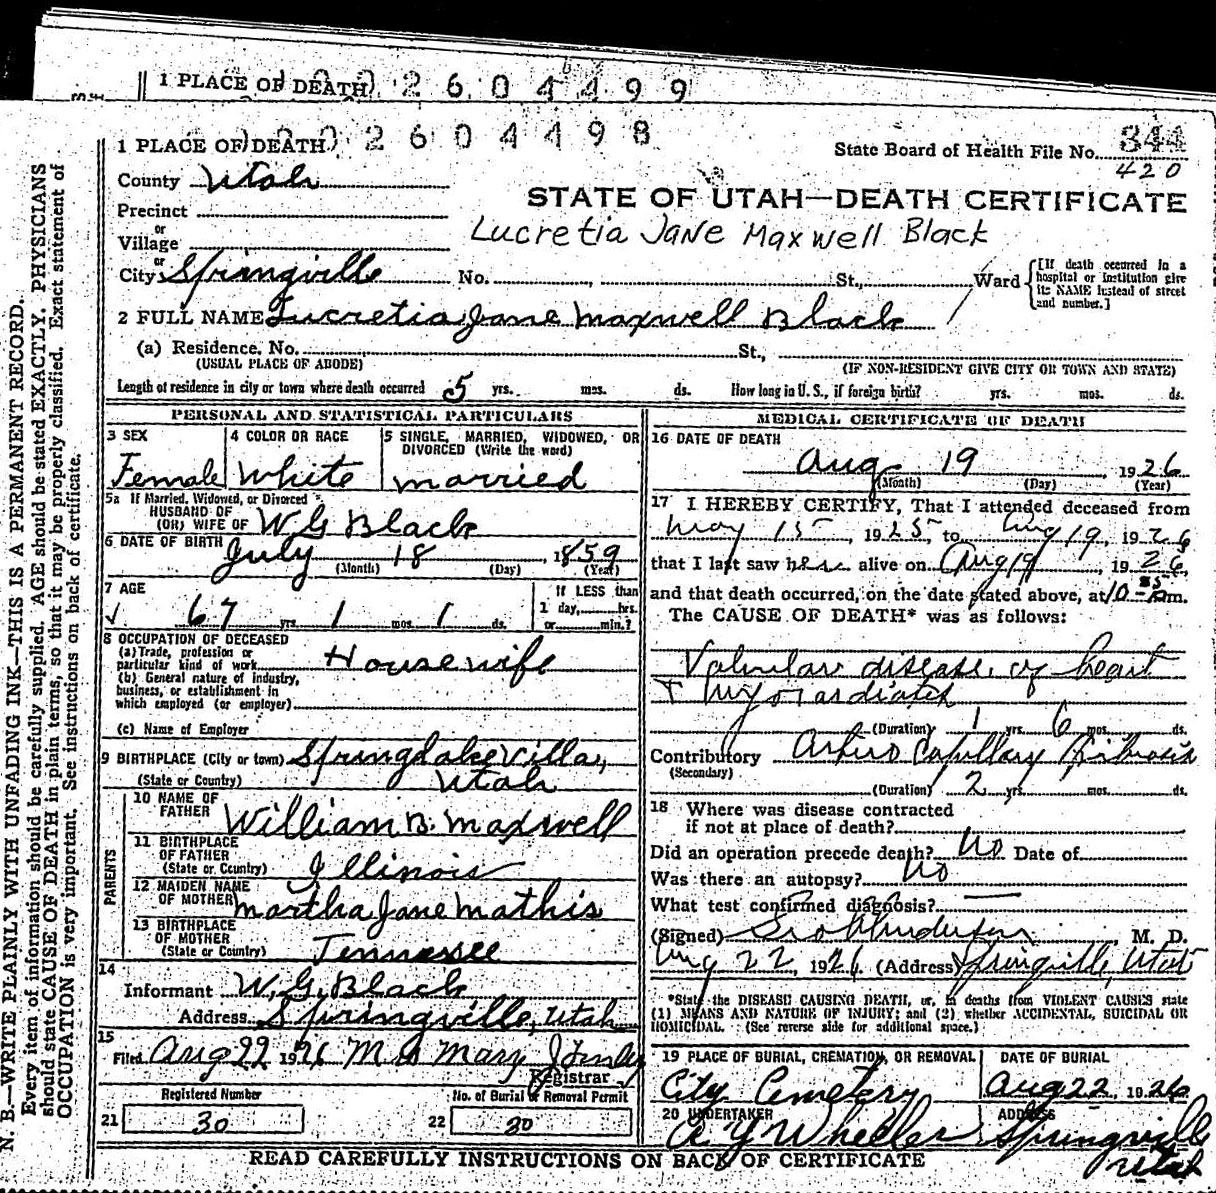 1 PLACE OF DEATH 2604499
2604498
1 PLACE OF DEATH
State Board of Health File No. 344
420
County Utah
STATE OF UTAH—DEATH CERTIFICATE
Precinct
or
Village
Lucretia Jane Maxwell Black
or
City Springville No. St., Ward
[If death occurred in a hospital or institution give its NAME instead of street and number.]
2 FULL NAME Lucretia Jane Maxwell Black
(a) Residence. No. St.,
(USUAL PLACE OF ABODE) (IF NON-RESIDENT GIVE CITY OR TOWN AND STATE)
Length of residence in city or town where death occurred 5 yrs. mos. ds. How long in U. S., if foreign birth? yrs. mos. ds.
PERSONAL AND STATISTICAL PARTICULARS
3 SEX
Female
4 COLOR OR RACE
White
5 SINGLE, MARRIED, WIDOWED, OR
DIVORCED (Write the word)
married
5a If Married, Widowed, or Divorced
HUSBAND OF
(OR) WIFE OF W G Black
6 DATE OF BIRTH July 18, 1859
(Month) (Day) (Year)
7 AGE
67 yrs. 1 mos. 1 ds.
If LESS than
1 day, hrs.
or min.?
8 OCCUPATION OF DECEASED
(a) Trade, profession or
particular kind of work Housewife
(b) General nature of industry,
business, or establishment in
which employed (or employer)
(c) Name of Employer
9 BIRTHPLACE (City or town) Springdale Villa,
(State or Country) Utah
PARENTS
10 NAME OF
FATHER William B. Maxwell
11 BIRTHPLACE
OF FATHER
(State or Country) Illinois
12 MAIDEN NAME
OF MOTHER Martha Jane Mathis
13 BIRTHPLACE
OF MOTHER
(State or Country) Tennessee
14
Informant W. G. Black
Address Springville, Utah
15
Filed Aug 22 1926 Mary J
Registrar
Registered Number
21 30
No. of Burial or Removal Permit
22 30
MEDICAL CERTIFICATE OF DEATH
16 DATE OF DEATH
Aug 19, 1926
(Month) (Day) (Year)
17 I HEREBY CERTIFY, That I attended deceased from
May 15, 1925, to Aug 19, 1926
that I last saw her alive on Aug 19, 1926,
and that death occurred, on the date stated above, at 10 m.
The CAUSE OF DEATH* was as follows:
Valvular disease of heart
+ Myocarditis
(Duration) 1 yrs. 6 mos. ds.
Contributory Arterio Capillary Fibrosis
(Secondary)
(Duration) 2 yrs. mos. ds.
18 Where was disease contracted
if not at place of death?
Did an operation precede death? No Date of
Was there an autopsy? No
What test confirmed diagnosis? —
(Signed) Anderson, M. D.
Aug 22, 1926 (Address) Springville, Utah
*State the DISEASE CAUSING DEATH, or, in deaths from VIOLENT CAUSES state
(1) MEANS AND NATURE OF INJURY; and (2) whether ACCIDENTAL, SUICIDAL OR
HOMICIDAL. (See reverse side for additional space.)
19 PLACE OF BURIAL, CREMATION, OR REMOVAL
City Cemetery
DATE OF BURIAL
Aug 22, 1926
20 UNDERTAKER
A Y Wheeler
ADDRESS
Springville
Utah
READ CAREFULLY INSTRUCTIONS ON BACK OF CERTIFICATE
N. B.—WRITE PLAINLY WITH UNFADING INK—THIS IS A PERMANENT RECORD.
Every item of information should be carefully supplied. AGE should be stated EXACTLY. PHYSICIANS
should state CAUSE OF DEATH in plain terms, so that it may be properly classified. Exact statement of
OCCUPATION is very important. See instructions on back of certificate.